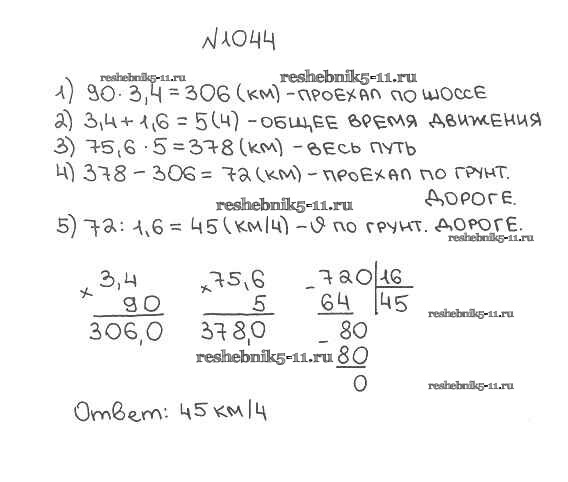 №1044
reshebnik5-11.ru
reshebnik5-11.ru
1) 90 · 3,4 = 306 (км) – проехал по шоссе
2) 3,4 + 1,6 = 5 (ч) – общее время движения
3) 75,6 · 5 = 378 (км) – весь путь
4) 378 – 306 = 72 (км) – проехал по грунт.
дороге.
reshebnik5-11.ru
5) 72 : 1,6 = 45 (км/ч) – υ по грунт. дороге.
reshebnik5-11.ru
× 3,4
90
306,0
× 75,6
5
378,0
– 720 16
64 45
– 80
80
0
reshebnik5-11.ru
reshebnik5-11.ru
reshebnik5-11.ru
Ответ: 45 км/ч